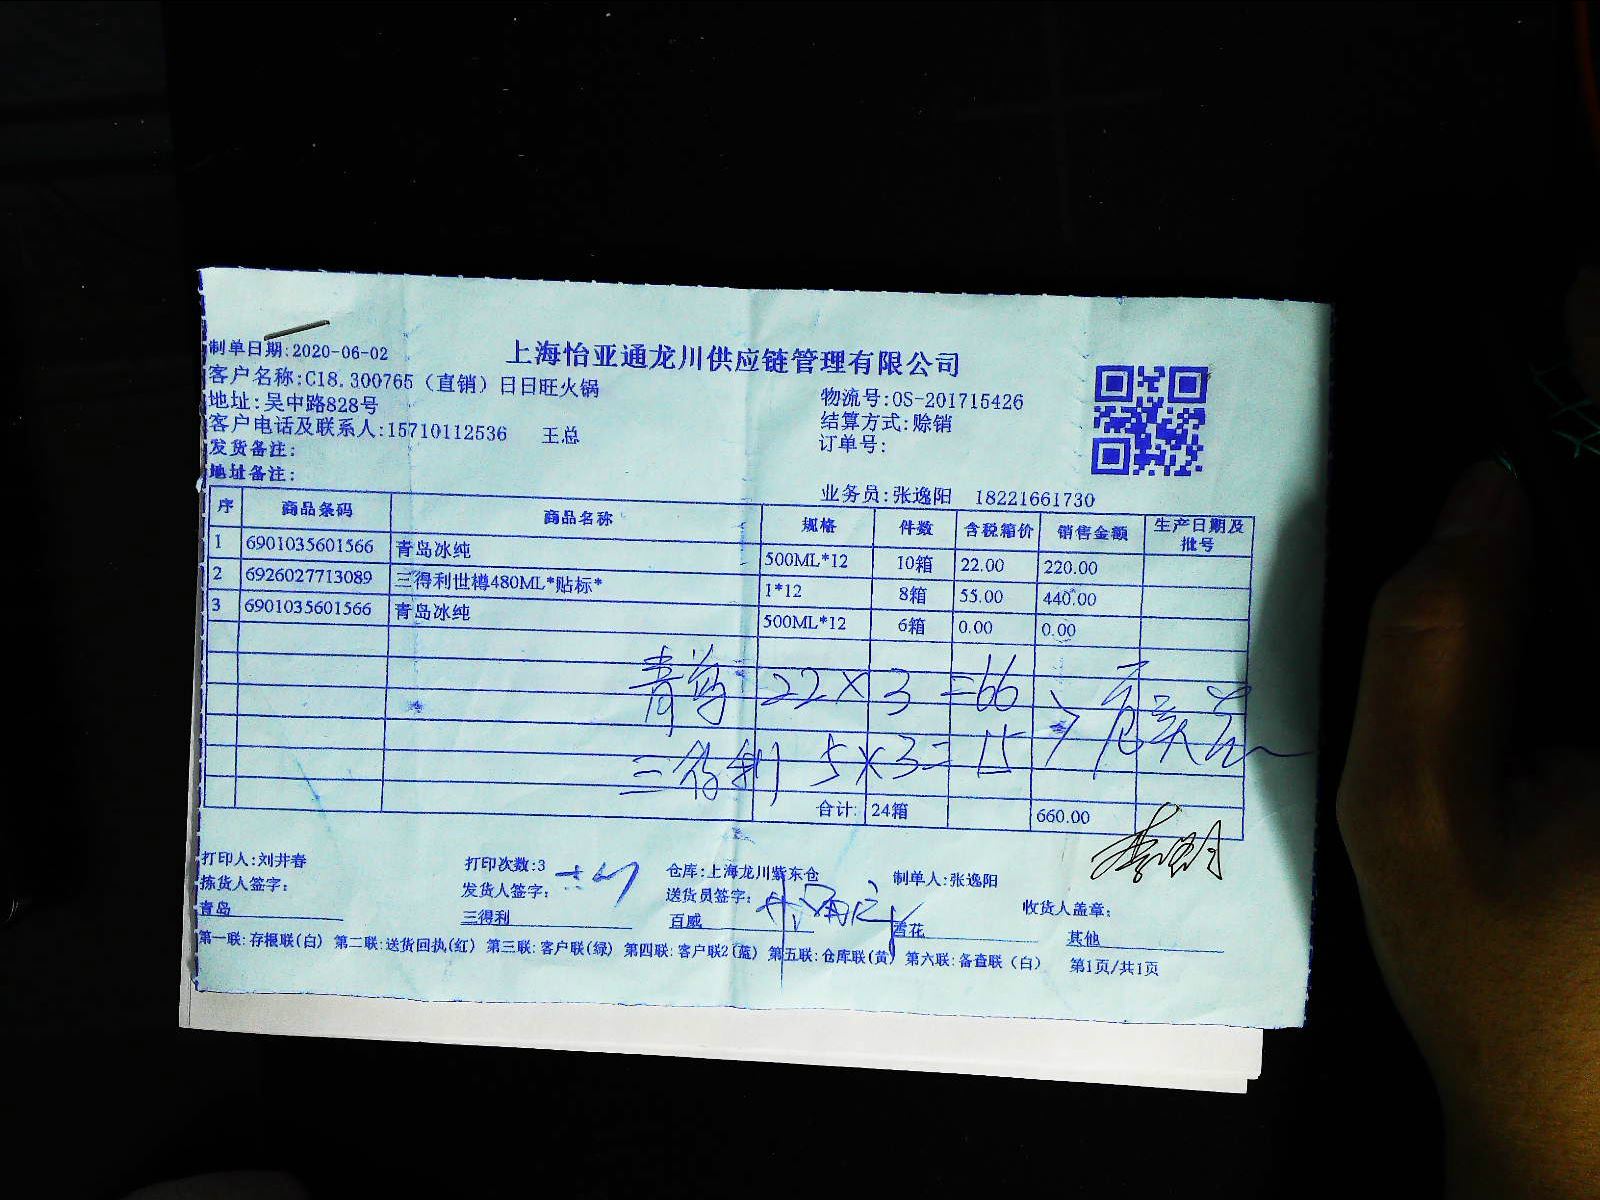 制单日期:2020-06-02
上海怡亚通龙川供应链管理有限公司
客户名称:C18.300765（直销）日日旺火锅
物流号:OS-201715426
地址:吴中路828号
结算方式:赊销
客户电话及联系人:15710112536 王总
订单号:
发货备注:
地址备注:
业务员:张逸阳 18221661730
序 商品条码 商品名称 规格 件数 含税箱价 销售金额 生产日期及批号
1 6901035601566 青岛冰纯 500ML*12 10箱 22.00 220.00
2 6926027713089 三得利世樽480ML*贴标* 1*12 8箱 55.00 440.00
3 6901035601566 青岛冰纯 500ML*12 6箱 0.00 0.00
青岛 22×3=66
三得利 5×3=15
合计: 24箱 660.00
打印人:刘井春 打印次数:3 仓库:上海龙川紫东仓 制单人:张逸阳
拣货人签字: 发货人签字: 送货员签字: 收货人盖章:
青岛 三得利 百威 雪花 其他
第一联:存根联(白) 第二联:送货回执(红) 第三联:客户联(绿) 第四联:客户联2(蓝) 第五联:仓库联(黄) 第六联:备查联（白） 第1页/共1页